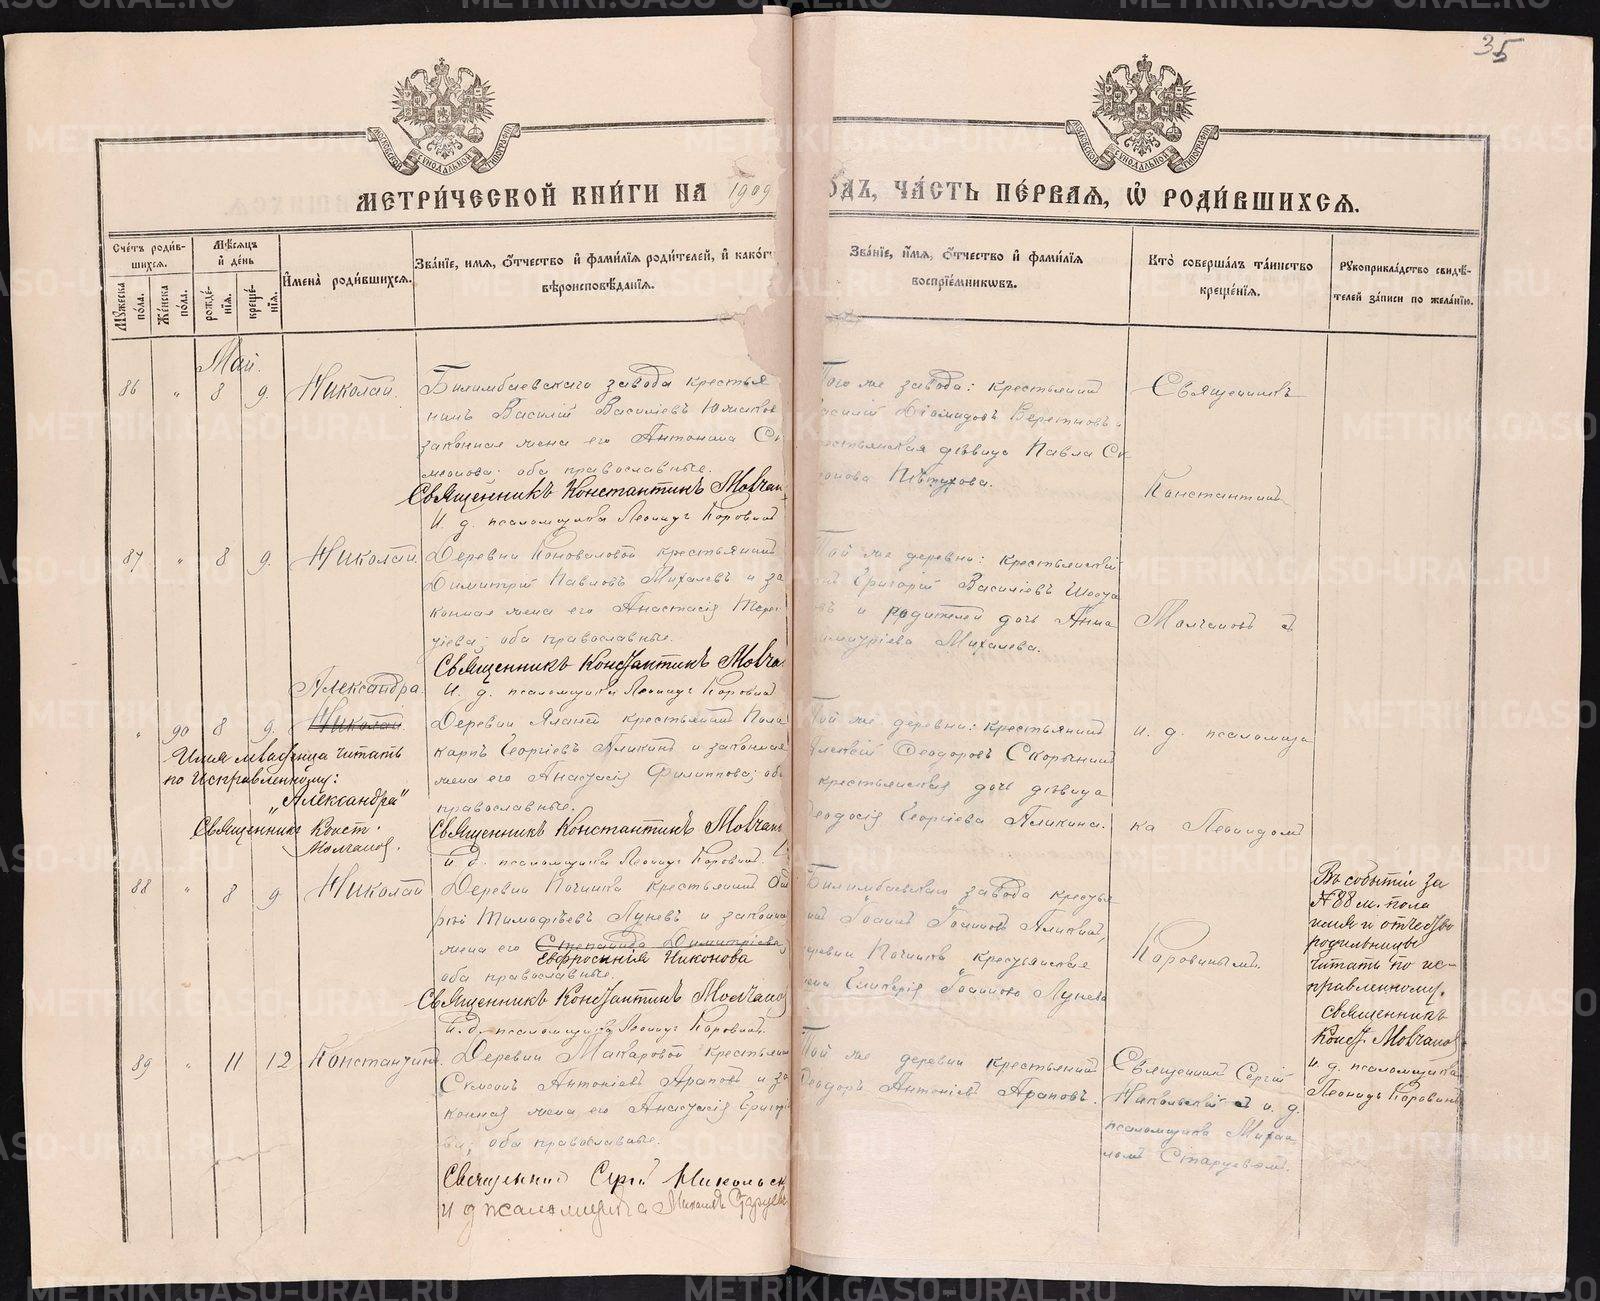 35
МОСКОВСКОЙ СУНОДАЛЬНОЙ ТИПОГРАФІИ
МОСКОВСКОЙ СУНОДАЛЬНОЙ ТИПОГРАФІИ
МЕТРИ́ЧЕСКОЙ КНИ́ГИ НА 1909
ОДЪ, ЧА́СТЬ ПЕ́РВАѦ, Ѡ҆ РОДИ́ВШИХСѦ.
Сче́тъ роди́в-
шихсѧ.
Му́жеска
по́ла.
Же́нска
по́ла.
Мѣ́сѧцъ
и҆ де́нь
рожде́-
нїѧ.
креще́-
нїѧ.
И҆мена̀ роди́вшихсѧ.
Зва́нїе, и҆́мѧ, ѻ҆́тчество и҆ фами́лїѧ роди́телей, и҆ како́г
вѣроисповѣ́данїѧ.
Зва́нїе, и҆́мѧ, ѻ҆́тчество и҆ фами́лїѧ
воспрїе́мникѡвъ.
Кто̀ соверша́лъ та́инство
креще́нїѧ.
Рꙋкоприкла́дство свидѣ́-
телей за́писи по жела́нїю.
Май.
86 " 8 9. Николай.
Билимбаевскаго завода крестья
нинъ Василій Василіевъ Юшаков
законная жена его Антонина Си
меонова; оба православные.
Священникъ Константинъ Мовчан
И. д. псаломщика Леонидъ Коровинъ
Того же завода: крестьянинъ
асилій Діомидовъ Веретновъ и
рестьянская дѣвица Павла Си
онова Пѣтухова.
Священникъ
Константинъ
87 " 8 9. Николай.
Деревни Коноваловой крестьянинъ
Димитрій Павловъ Михалевъ и за
конная жена его Анастасія
; оба православные.
Священникъ Константинъ Мовча
И. д. псаломщика Леонидъ Коровинъ
Той же деревни: крестьянскій
Григорій Василіевъ
и родителей дочь Анна
имитріева Михалева.
Молчановъ съ
Александра.
" 90 8 9. Николай
Имя младенца читать
по исправленному:
"Александра"
Священникъ Конст.
Молчанов.
Деревни Яланей крестьянинъ Поли
карпъ Георгіевъ Аликинъ и законная
жена его Анастасія Филиппова; оба
православные.
Священникъ Константинъ Мовчан
И. д. псаломщика Леонидъ Коровинъ.
Той же деревни: крестьянинъ
Алексій Феодоровъ Скорынинъ
крестьянская дочь дѣвица
еодосія Георгіева Аликина.
и. д. псаломщи
ка Леонидомъ
88 " 8 9 Николай
Деревни Починка крестьянинъ
Тимофѣевъ Луневъ и законная
жена его Степанида Димитріева
Евфросинія Никонова
оба православные.
Священникъ Константинъ Молчанов
И. д. псаломщика Леонидъ Коровинъ.
Билимбаевскаго завода кресть
Іоаннъ Іоанновъ Аликинъ,
еревни Починка крестьянская
жена Гликерія Іоаннова Лунева
Коровинымъ.
Въ событіи за
№ 88 м. пола
имя и отчество
родильницы
читать по ис-
правленному.
Священникъ
Конст. Мовчанов
и. д. псаломщика
Леонидъ Коровинъ
89 " 11 12 Константинъ.
Деревни Макаровой крестьянинъ
Симеонъ Антоніевъ Араповъ и за
конная жена его Анастасія Григорі
ва; оба православные.
Священник Сергій Никольск
и д псаломщика Михаилъ Старцев
Той же деревни крестьянинъ
Феодоръ Антоніевъ Араповъ.
Священник Сергій
Никольскій съ и. д.
псаломщика Михаи
ломъ Старцевымъ.
METRIKI.GASO-URAL.RU